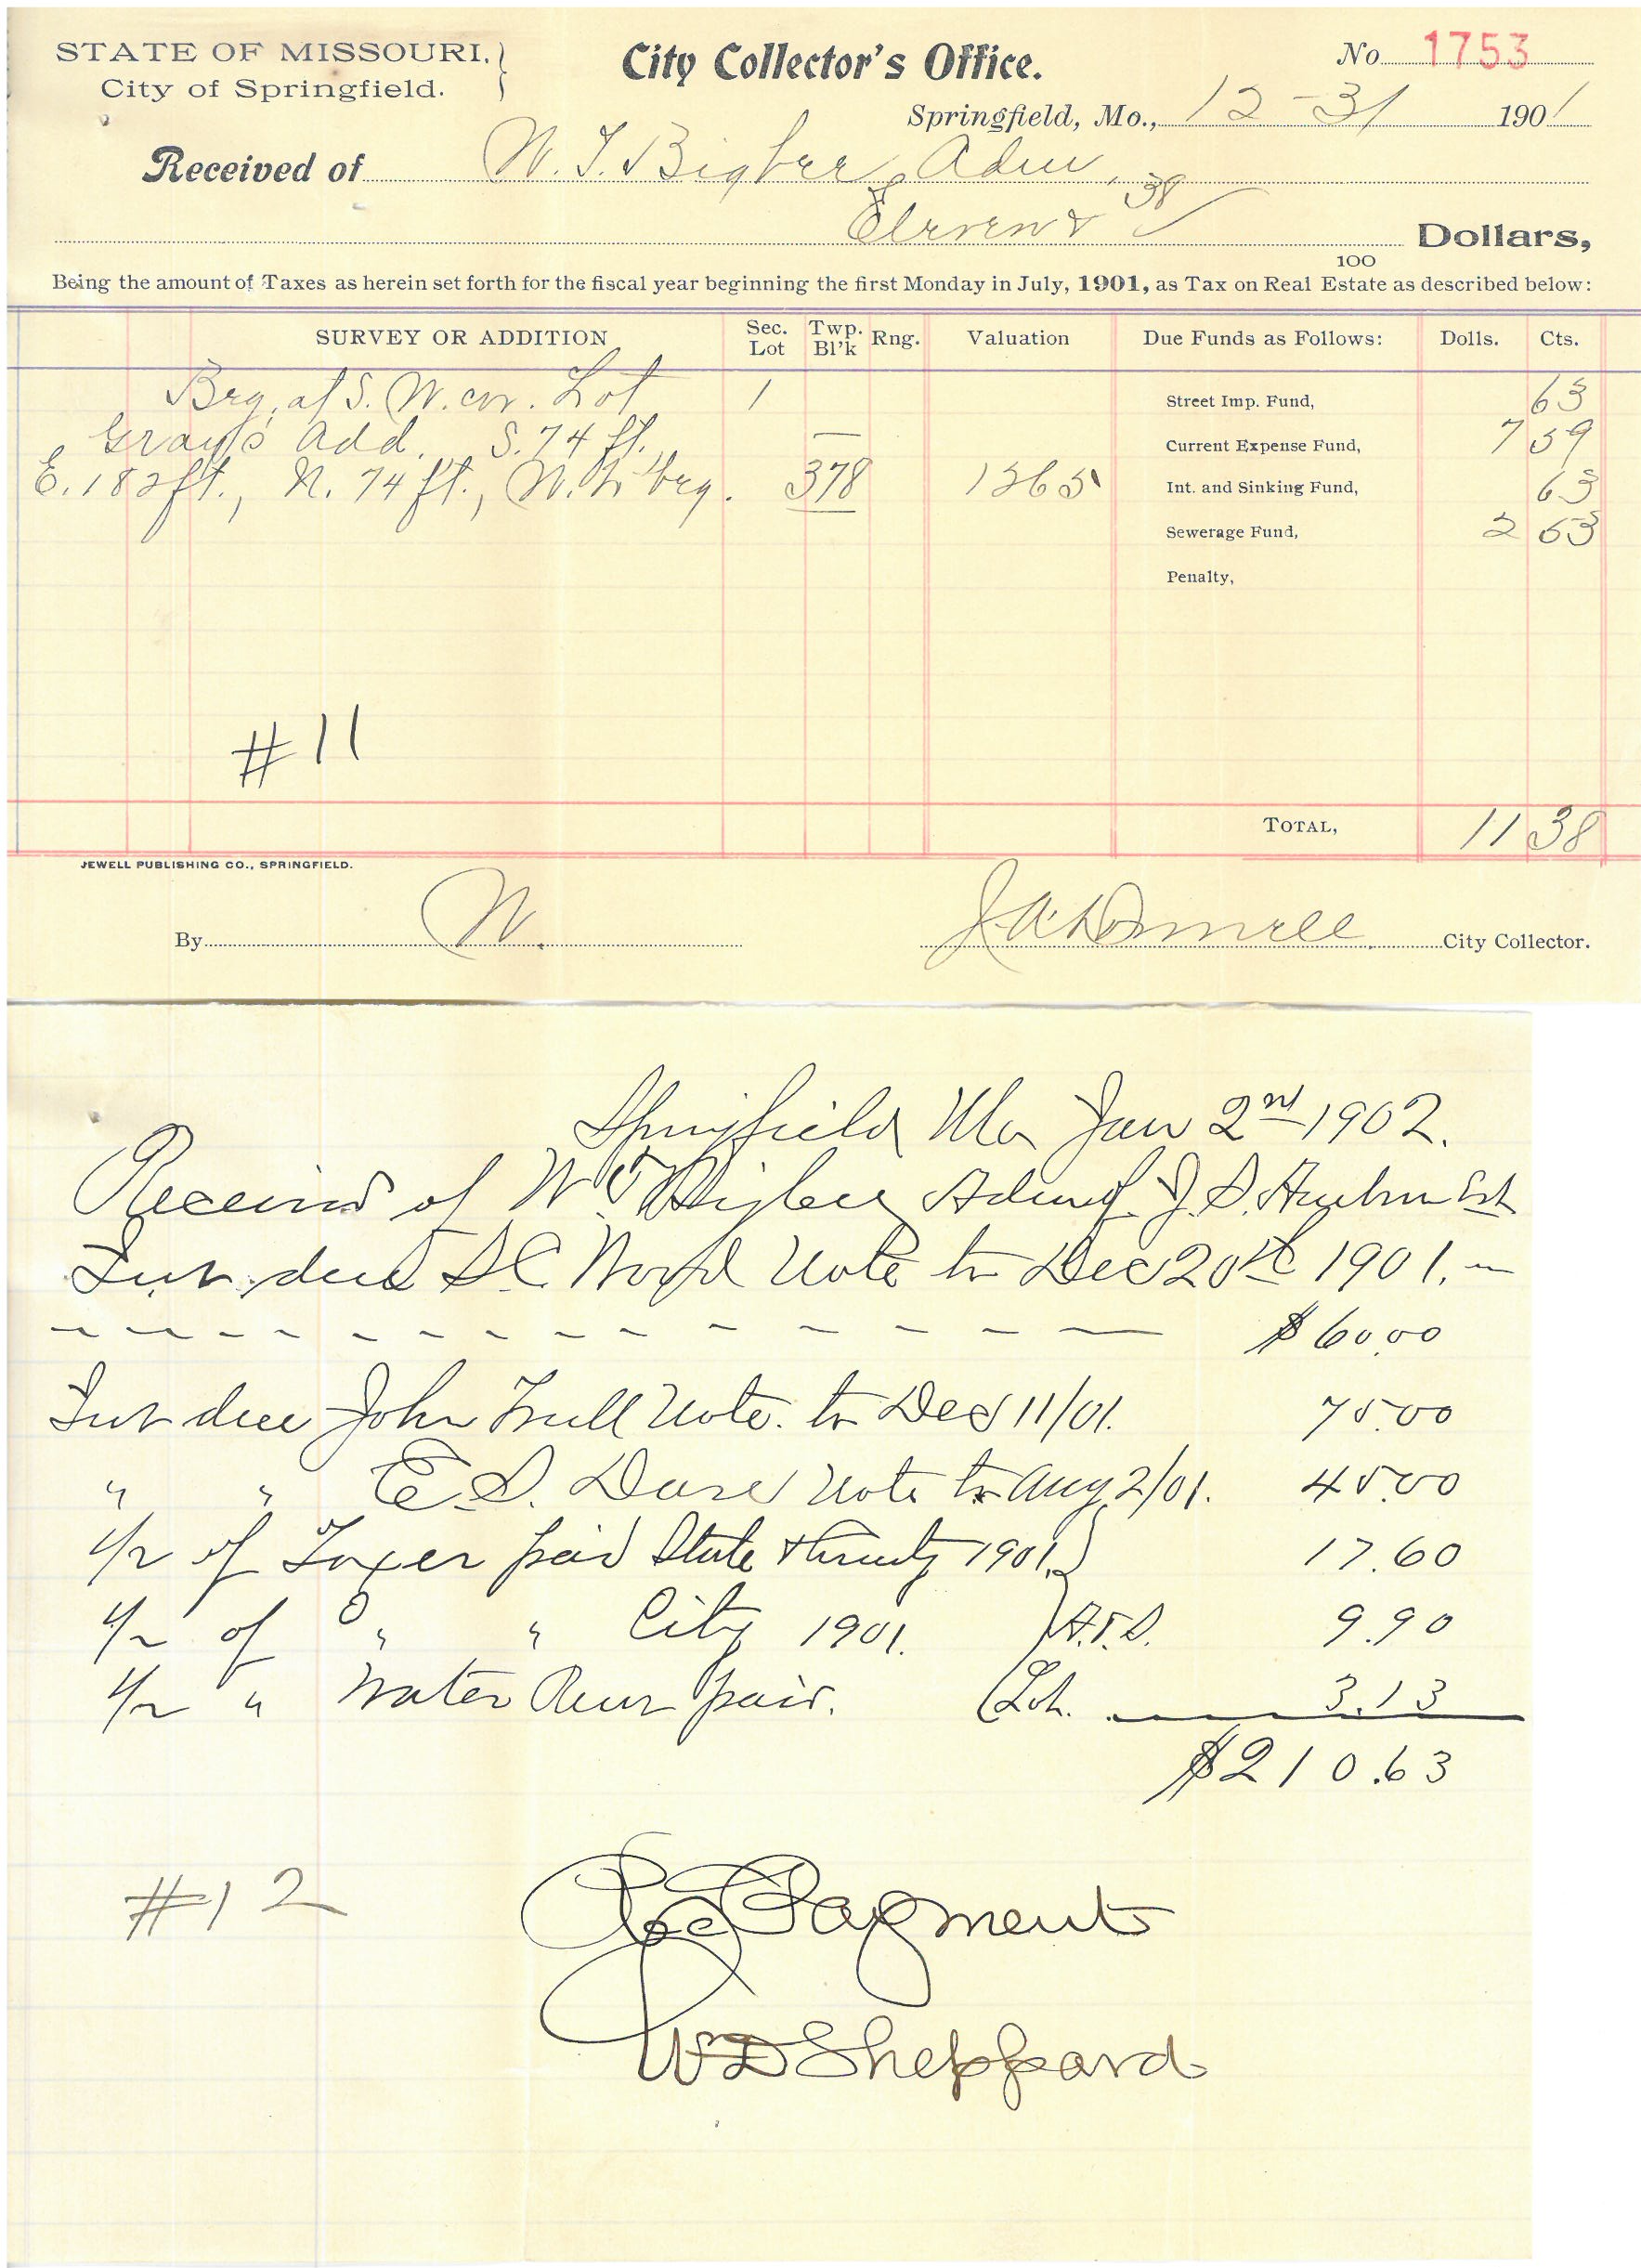 STATE OF MISSOURI,
City of Springfield.
City Collector's Office.
No. 1753
Springfield, Mo., 12-31 1901
Received of W. T. Bigbee, Adm.
Eleven & 38/100 Dollars,
Being the amount of Taxes as herein set forth for the fiscal year beginning the first Monday in July, 1901, as Tax on Real Estate as described below:
SURVEY OR ADDITION Sec. Lot Twp. Bl'k Rng. Valuation Due Funds as Follows: Dolls. Cts.
Beg. at S. W. cor. Lot 1 Street Imp. Fund, 63
Gray's Add. S. 74 ft. Current Expense Fund, 7 59
E. 182 ft., N. 74 ft., W. to beg. 378 1265 Int. and Sinking Fund, 63
Sewerage Fund, 2 53
Penalty,
#11
TOTAL, 11 38
JEWELL PUBLISHING CO., SPRINGFIELD.
By W. City Collector.
Springfield Mo Jan 2nd 1902.
Received of W T Bigbee Adm of J. S. Est
Int. due S. C. Note to Dec 20th 1901.
$60.00
Int due John Note. to Dec 11/01. 75.00
" " E. S. Note to Aug 2/01. 45.00
1/2 of Taxes paid State & County 1901. 17.60
1/2 of " " City 1901. 9.90
1/2 " Water paid. 3.13
$210.63
#12
Payment
W D Sheppard